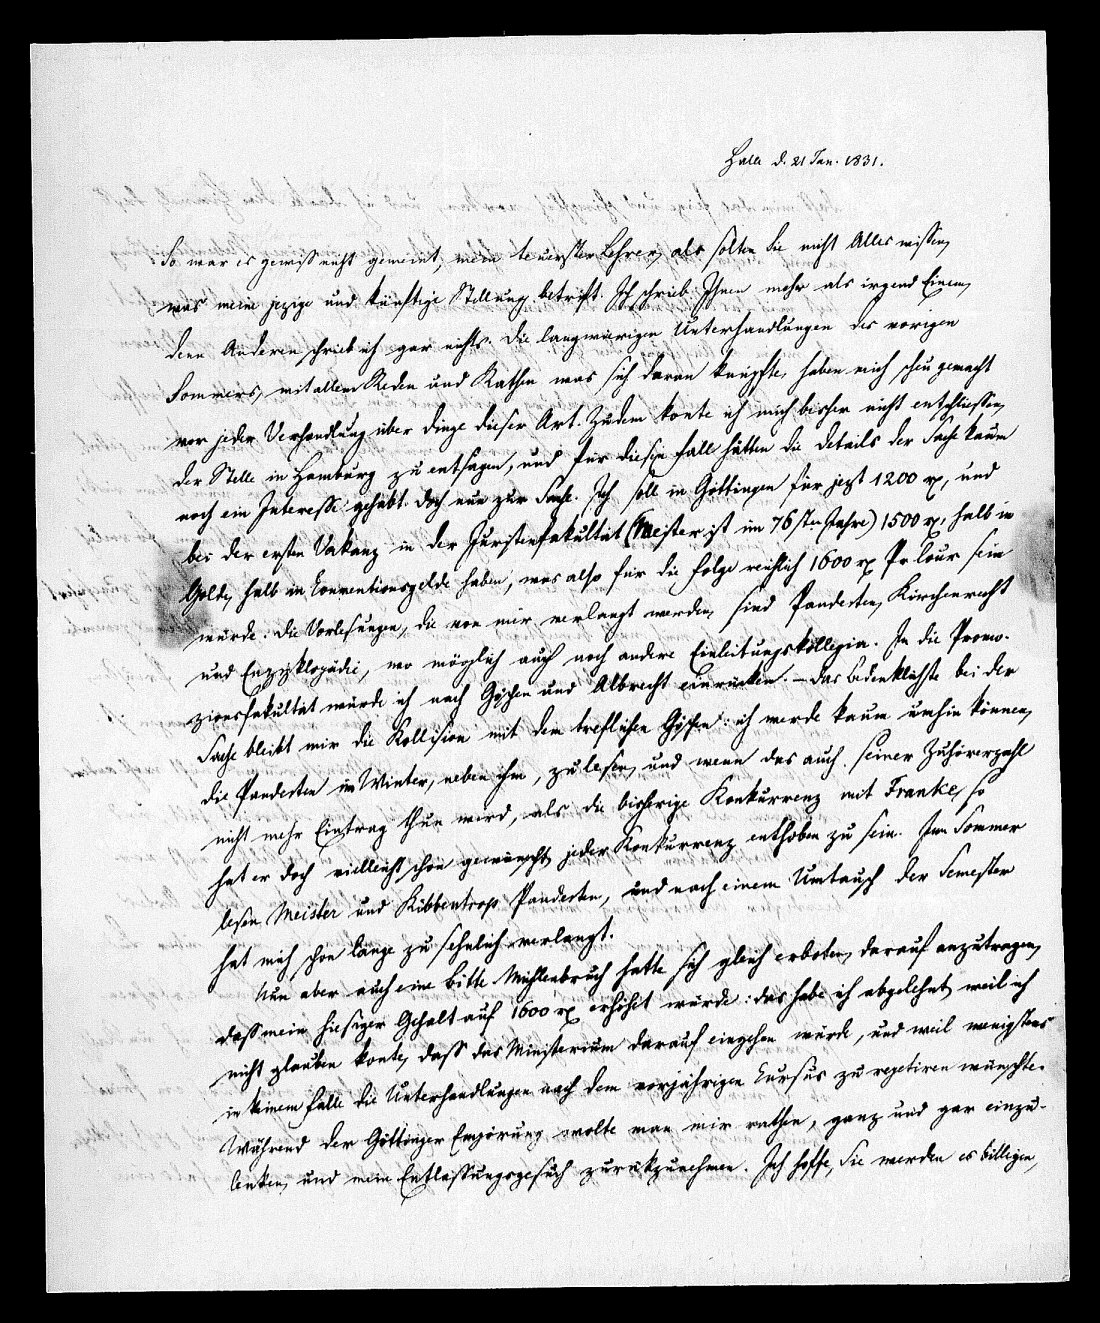 Halle d. 21 Jan. 1831.
So war es gewiss nicht gemeint, mein teuerster Lehrer, als solten Sie nicht Alles wissen,
was meine jezige und künftige Stellung betrift. Ich schrieb Ihnen mehr als irgend Einem,
denn Anderen schrieb ich gar nichts. Die langwierigen Unterhandlungen des vorigen
Sommers, mit allem Reden und Rathen was sich daran knüpfte, haben mich scheu gemacht
vor jeder Verhandlung über Dinge dieser Art. Zudem konte ich mich bisher nicht entschliessen,
der Stelle in Hamburg zu entsagen, und für diesen Fall hätten die Details der Sache kaum
noch ein Interesse gehabt. Doch nun zur Sache. Ich soll in Göttingen für jezt 1200 rx, und
bei der ersten Vakanz in der Juristenfakultät (Meister ist im 76sten Jahre) 1500 rx, halb in
Golde, halb in Conventionsgelde haben, was also für die Folge reichlich 1600 rx Pr. Cour sein
würde: die Vorlesungen, die von mir verlangt werden, sind Pandecten, Kirchenrecht
und Enzyklopädie, wo möglich auch noch andere Einleitungskollegia. In die Promo-
zionsfakultät würde ich nach Göschen und Albrecht einrücken. – Das Bedenklichste bei der
Sache bleibt mir die Kollision mit dem treflichen Göschen: ich werde kaum umhin können,
die Pandecten im Winter, neben ihm, zu lesen, und wenn das auch seiner Zuhörerzahl
nicht mehr Eintrag thun wird, als die bisherige Konkurrenz mit Franke, so
hat er doch vielleicht schon gewünscht, jeder Konkurrenz enthoben zu sein. Im Sommer
lesen Meister und Ribbentrop Pandecten, und nach einem Umtausch der Semester
hat mich schon lange zu sehnlich verlangt.
Nun aber auch eine Bitte. Mühlenbruch hatte sich gleich erboten, darauf anzutragen,
dass mein hiesiger Gehalt auf 1600 rx erhöhet würde: das habe ich abgelehnt, weil ich
nicht glauben konte, dass das Ministerium darauf eingehen würde, und weil wenigstens
in keinem Falle die Unterhandlungen nach dem vorjährigen Cursus zu repetiren wünschte.
Während der Göttinger Empörung wolte man mir rathen, ganz und gar einzu-
lenken, und mein Entlassungsgesuch zurükzunehmen. Ich hoffe, Sie werden es billigen,